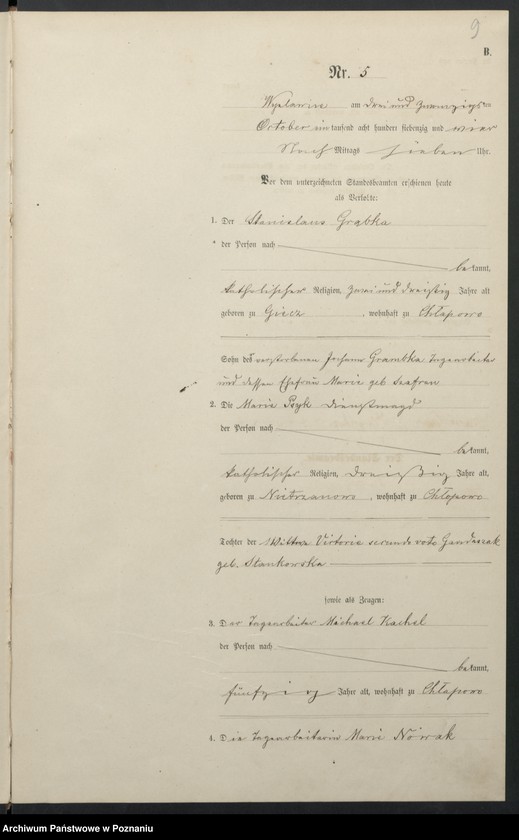 9
B.
Nr. 5
am drei und zwanzigsten
October ein tausend acht hundert siebenzig und vier
Nach Mittags sieben Uhr.
Vor dem unterzeichneten Standesbeamten erschienen heute
als Verlobte:
1. Der Stanislaus Grąbka
der Person nach
bekannt,
katholischer Religion, zwei und dreißig Jahre alt
geboren zu Giecz, wohnhaft zu Chłapowo
Sohn des verstorbenen Johann Grambka Tagearbeiter
und dessen Ehefrau Marie geb Szafran
2. Die Marie Dienstmagd
der Person nach
bekannt,
katholischer Religion, dreißig Jahre alt,
geboren zu, wohnhaft zu Chłapowo
Tochter der Victoria secundo voto
geb. Stankowska
sowie als Zeugen:
3. Der Tagearbeiter Michael Kachel
der Person nach
bekannt,
fünfzig Jahre alt, wohnhaft zu Chłapowo
4. Die Tagearbeiterin Marie Nowak
Archiwum Państwowe w Poznaniu